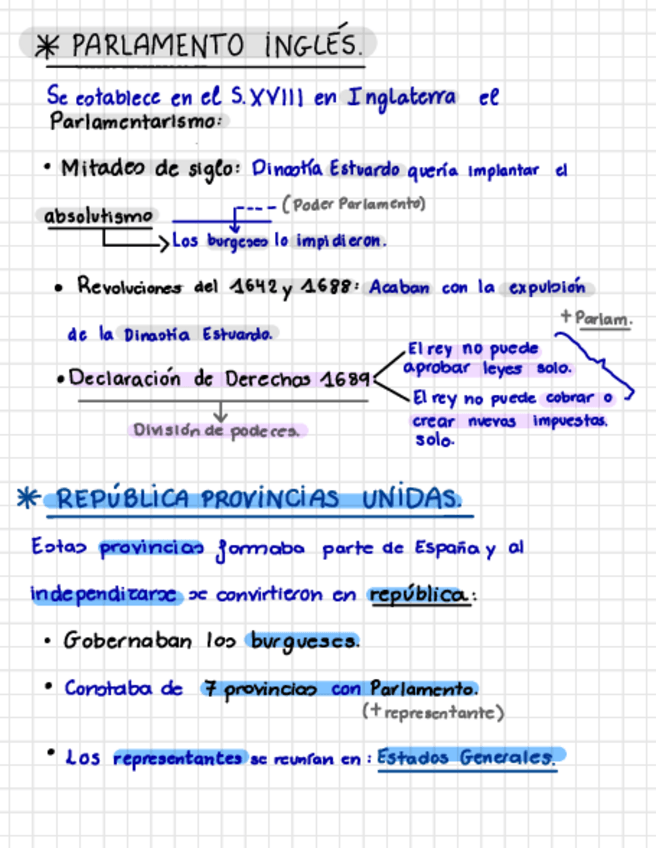 * PARLAMENTO INGLÉS.
Se establece en el S.XVIII en Inglaterra el
Parlamentarismo:
• Mitades de siglo: Dinastía Estuardo quería implantar el
absolutismo
(Poder Parlamento)
Los burgeses lo impidieron.
• Revoluciones del 1642 y 1688: Acaban con la expulsión
de la Dinastía Estuardo.
+ Parlam.
• Declaración de Derechos 1689
El rey no puede
aprobar leyes solo.
El rey no puede cobrar o
crear nuevas impuestos.
solo.
División de poderes.
* REPÚBLICA PROVINCIAS UNIDAS.
Estas provincias formaba parte de España y al
independizarse se convirtieron en república:
• Gobernaban los burgueses.
• Constaba de 7 provincias con Parlamento.
(+ representante)
• Los representantes se reunían en: Estados Generales.